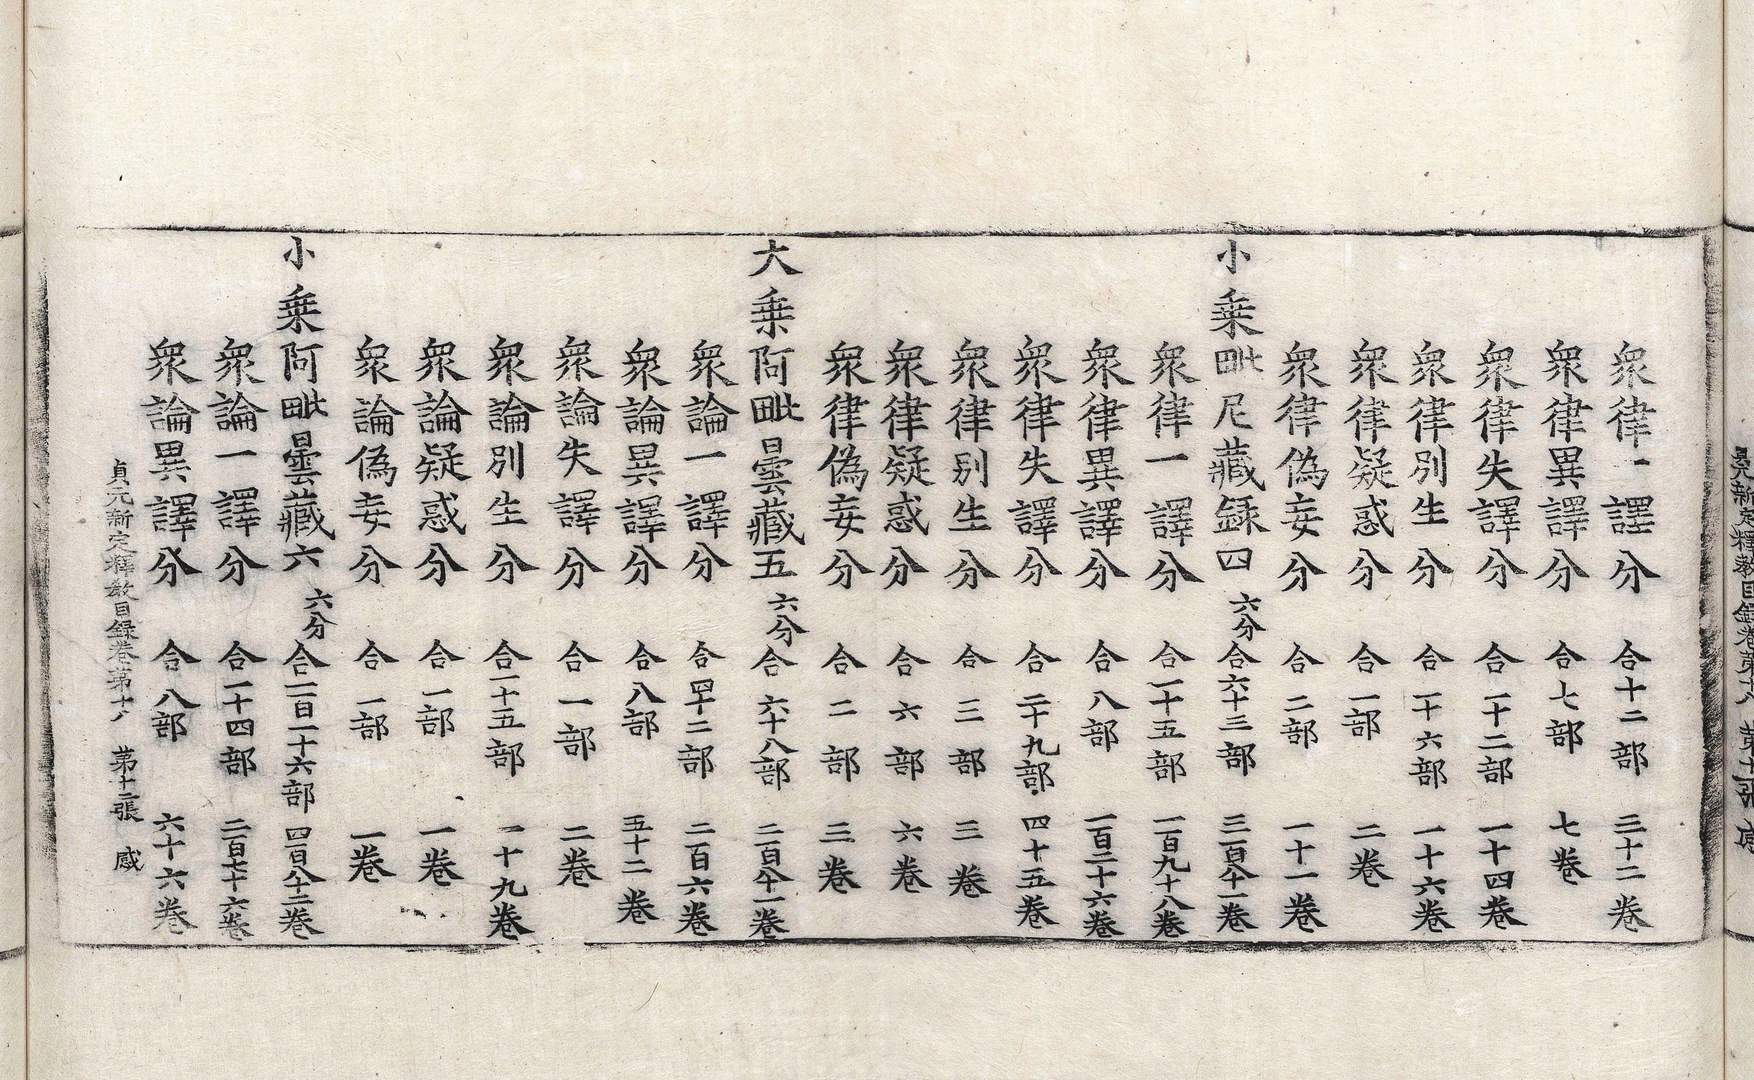 衆律一譯分 合十二部 三十二卷
衆律異譯分 合七部 七卷
衆律失譯分 合一十二部 一十四卷
衆律別生分 合一十六部 一十六卷
衆律疑惑分 合一部 二卷
衆律偽妄分 合二部 一十一卷
小乗毗尼藏録四 六分 合六十三部 三百八十一卷
衆律一譯分 合一十五部 一百九十八卷
衆律異譯分 合八部 一百二十六卷
衆律失譯分 合二十九部 四十五卷
衆律別生分 合三部 三卷
衆律疑惑分 合六部 六卷
衆律偽妄分 合二部 三卷
大乗阿毗曇藏五 六分 合六十八部 二百八十一卷
衆論一譯分 合四十二部 二百六卷
衆論異譯分 合八部 五十二卷
衆論失譯分 合一部 二卷
衆論別生分 合一十五部 一十九卷
衆論疑惑分 合一部 一卷
衆論偽妄分 合一部 一卷
小乗阿毗曇藏六 六分 合一百一十六部 四百八十二卷
衆論一譯分 合一十四部 二百七十六卷
衆論異譯分 合八部 六十六卷
貞元新定釋教目録卷第十八 第十二張